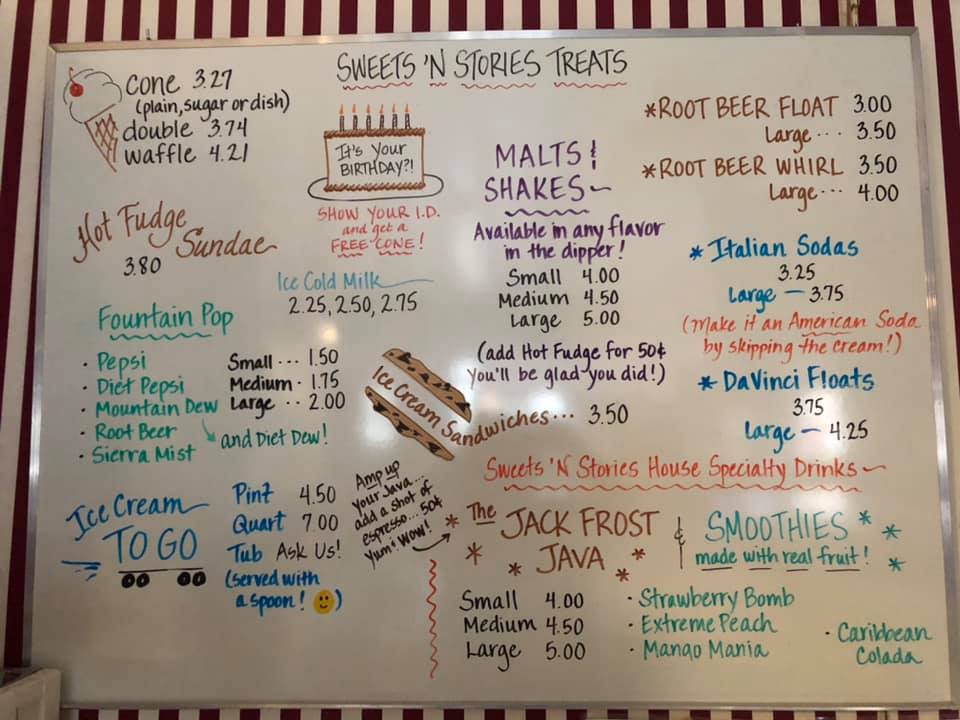 SWEETS 'N STORIES TREATS
cone 3.27
(plain, sugar or dish)
double 3.74
waffle 4.21
It's Your
BIRTHDAY?!
SHOW YOUR I.D.
and get a
FREE CONE!
Hot Fudge
Sundae
3.80
Ice Cold Milk
2.25, 2.50, 2.75
Fountain Pop
· Pepsi
· Diet Pepsi
· Mountain Dew
and Diet Dew!
· Root Beer
· Sierra Mist
Small ... 1.50
Medium · 1.75
Large .. 2.00
MALTS &
SHAKES~
Available in any flavor
in the dipper!
Small 4.00
Medium 4.50
Large 5.00
(add Hot Fudge for 50¢
you'll be glad you did!)
*ROOT BEER FLOAT 3.00
Large ... 3.50
*ROOT BEER WHIRL 3.50
Large ... 4.00
* Italian Sodas
3.25
Large — 3.75
(Make it an American Soda
by skipping the cream!)
* DaVinci Floats
3.75
Large — 4.25
Ice Cream Sandwiches... 3.50
Ice Cream
TO GO
Pint 4.50
Quart 7.00
Tub Ask Us!
(served with
a spoon! 🙂)
Amp up
your Java...
add a shot of
espresso... 50¢
Yum + Wow!
Sweets 'N Stories House Specialty Drinks~
* The JACK FROST
* * JAVA * *
Small 4.00
Medium 4.50
Large 5.00
& SMOOTHIES * *
made with real fruit! *
· Strawberry Bomb
· Extreme Peach
· Mango Mania
· Caribbean
Colada